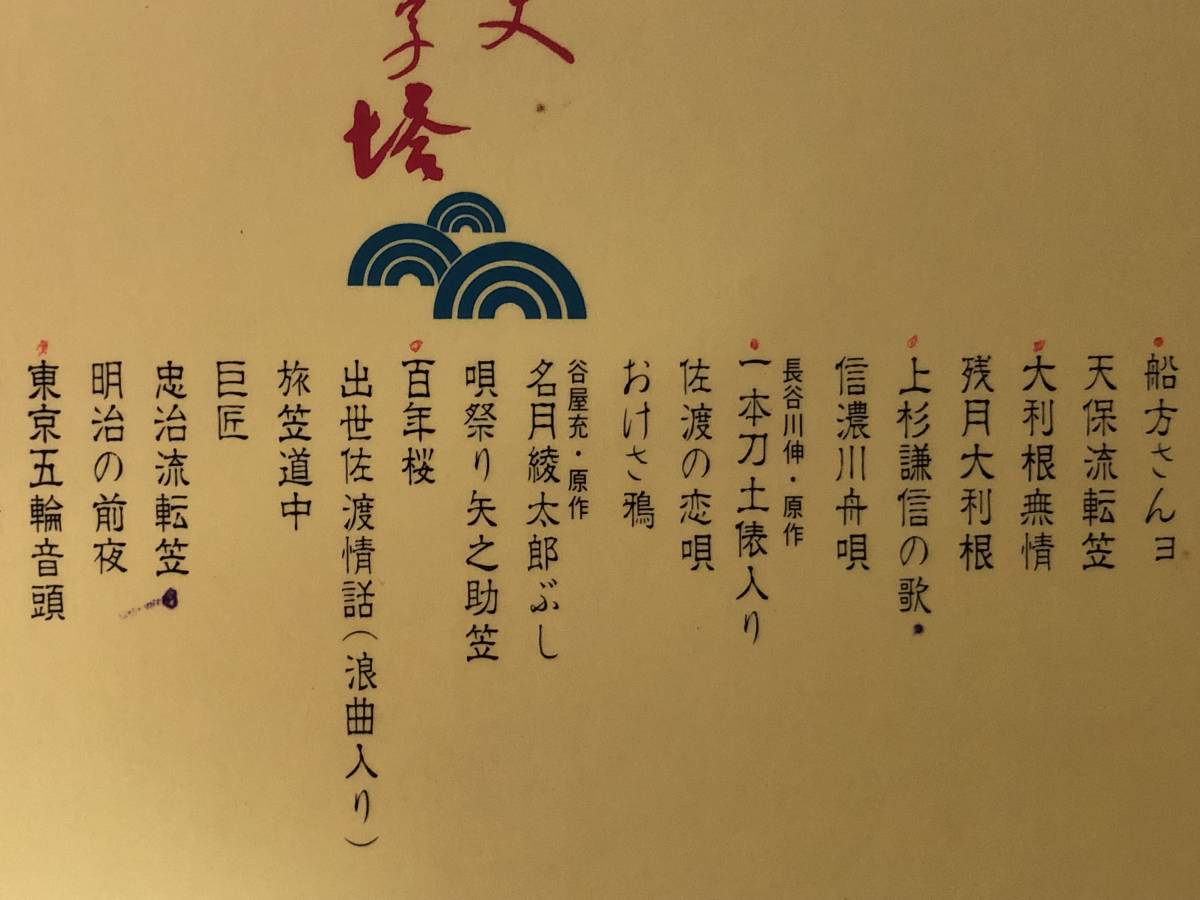 塔
船方さんヨ
天保流転笠
大利根無情
残月大利根
上杉謙信の歌
信濃川舟唄
長谷川伸・原作
一本刀土俵入り
佐渡の恋唄
おけさ鴉
谷屋充・原作
名月綾太郎ぶし
唄祭り矢之助笠
百年桜
出世佐渡情話(浪曲入り)
旅笠道中
巨匠
忠治流転笠
明治の前夜
東京五輪音頭